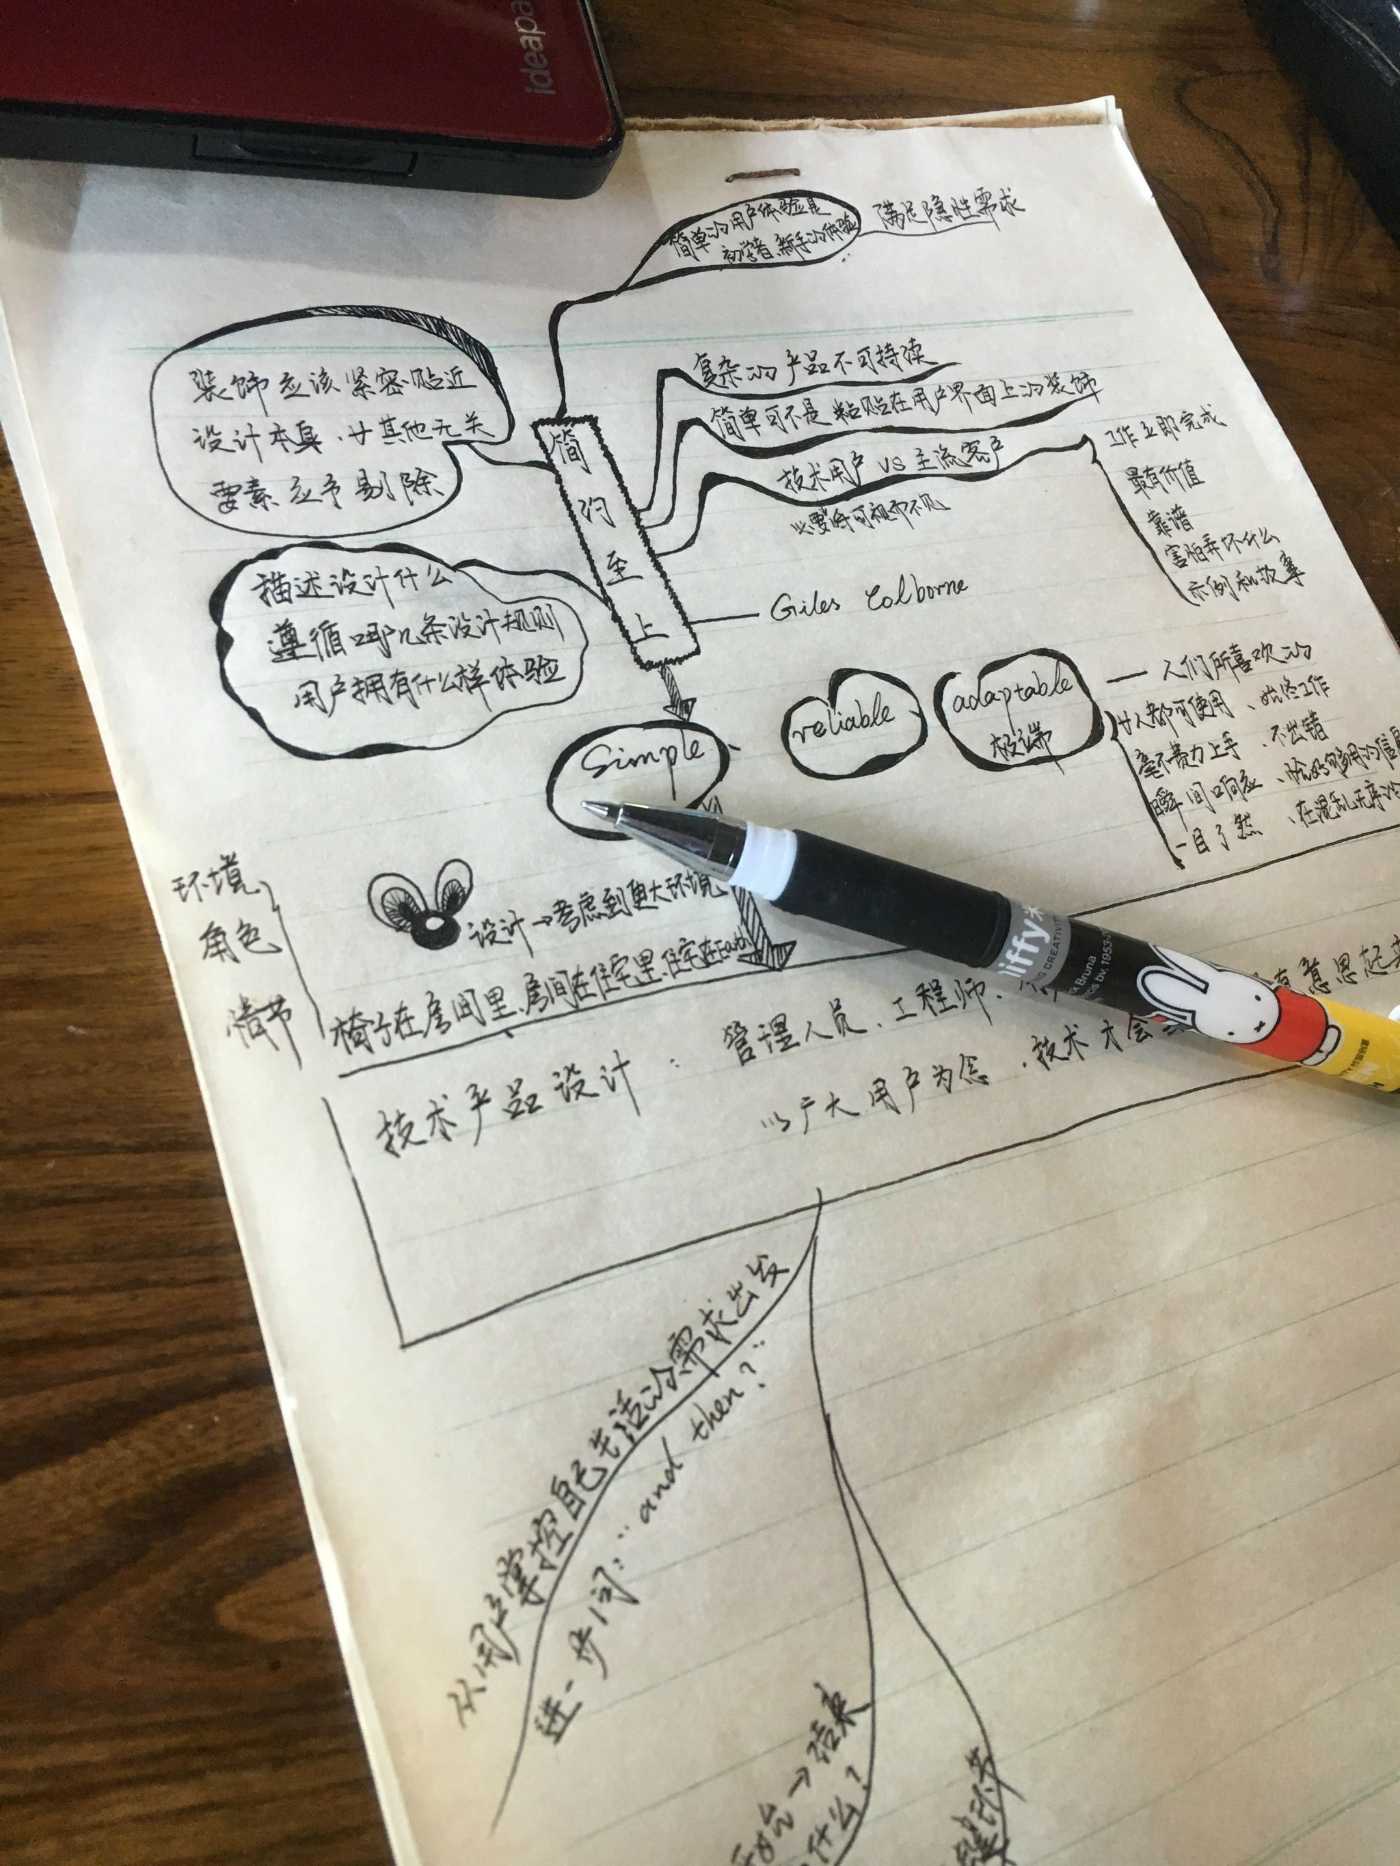 ideapa
简单的用户体验是
初学者、新手的体验
满足隐性需求
装饰应该紧密贴近
设计本真、其他无关
要素应予剔除
简约至上
复杂的产品不可持续
简单可不是粘贴在用户界面上的装饰
技术用户 vs 主流客户
可视而不见
工作立即完成
最有价值
靠谱
害怕弄坏什么
示例和故事
Giles Colborne
描述设计什么
遵循哪几条设计规则
用户拥有什么样体验
Simple
reliable
adaptable
极端
人们所喜欢的
人都可使用、始终工作
毫不费力上手、不出错
瞬间响应、恰好够用的信息
一目了然、在混乱无序
环境
角色
情节
设计→考虑到更大环境
椅子在房间里、房间在住宅里、住宅在Earth
技术产品设计：管理人员、工程师、
有意思起来
以广大用户为念、技术才会
iffy
CREATIVITY
Bruna
bv. 1953-
从用户掌控自己生活的需求出发
进一步问："and then?"
开始→结束
什么？
键环节